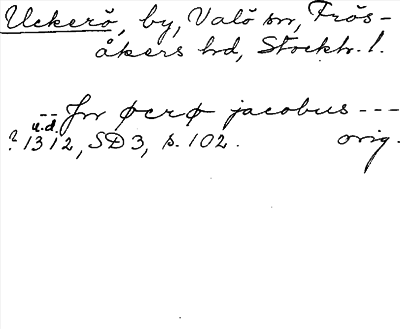 Uckerö, by, Valö sn, Frös-
åkers hd, Stockh. l.
-- Jn øcrø jacobus ---
u.d.
? 1312, SD 3, s. 102. orig.